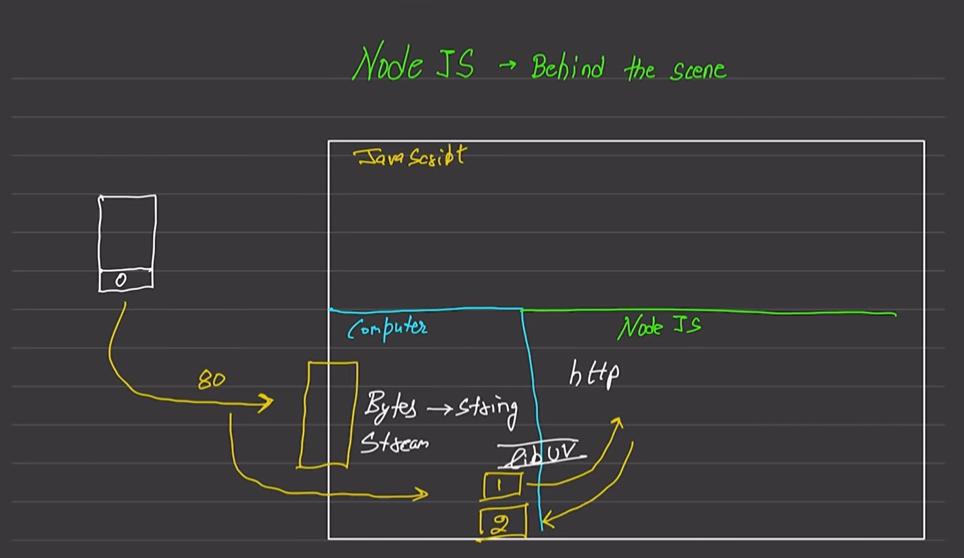 Node JS → Behind the scene
JavaScript
0
Computer
Node JS
80
http
Bytes → String
Stream
libUV
1
2